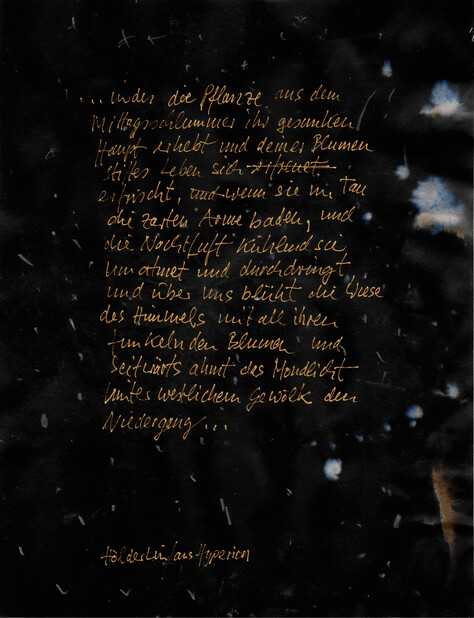 ... indes die Pflanze aus dem
Mittagsschlummer ihr gesunken
Haupt erhebt und deiner Blumen
stilles Leben sich
erfrischt, und wenn sie im Tau
die zarten Arme baden, und
die Nachtluft kühlend sie
umatmet und durchdringt,
und über uns blüht die Wiese
des Himmels mit all ihren
funkelnden Blumen und
seitwärts ahmt das Mondlicht
hinter westlichem Gewölk den
Niedergang...
Hölderlin/aus Hyperion